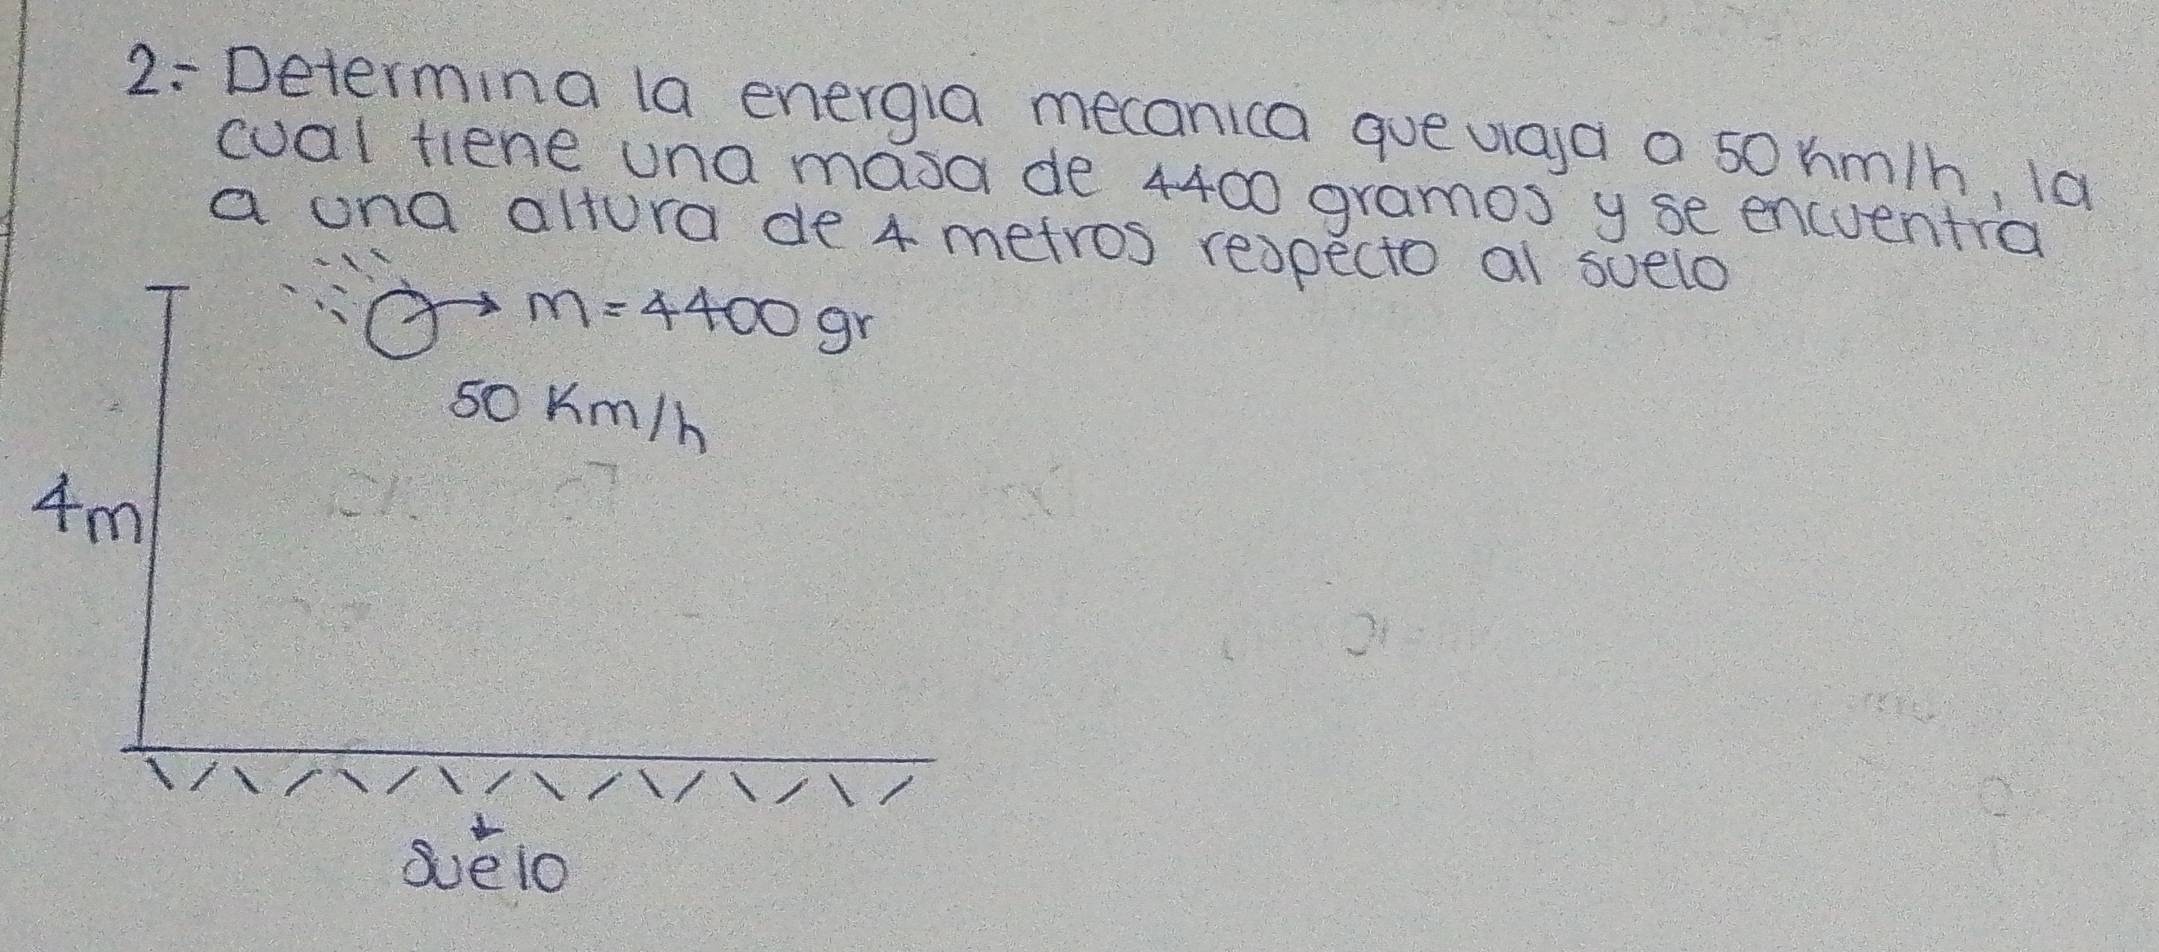 2.- Determina la energia mecanica que viaja a 50 km/h, la
cual tiene una masa de 4400 gramos y se encuentra
a una altura de 4 metros respecto al suelo
m = 4400 gr
50 Km/h
4m
suelo